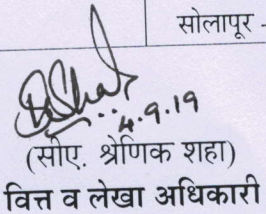 सोलापूर -
4.9.19
(सीए. श्रेणिक शहा)
वित्त व लेखा अधिकारी